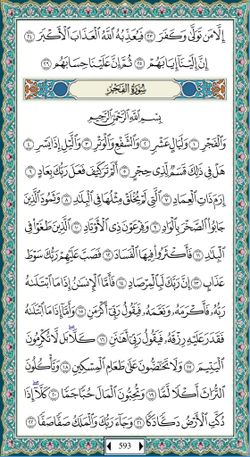 إِلَّا مَن تَوَلَّىٰ وَكَفَرَ ٢٣ فَيُعَذِّبُهُ اللَّهُ الْعَذَابَ الْأَكْبَرَ ٢٤
إِنَّ إِلَيْنَا إِيَابَهُمْ ٢٥ ثُمَّ إِنَّ عَلَيْنَا حِسَابَهُم ٢٦
سُورَةُ الْفَجْرِ
بِسْمِ اللَّهِ الرَّحْمَٰنِ الرَّحِيمِ
وَالْفَجْرِ ١ وَلَيَالٍ عَشْرٍ ٢ وَالشَّفْعِ وَالْوَتْرِ ٣ وَاللَّيْلِ إِذَا يَسْرِ ٤
هَلْ فِي ذَٰلِكَ قَسَمٌ لِّذِي حِجْرٍ ٥ أَلَمْ تَرَ كَيْفَ فَعَلَ رَبُّكَ بِعَادٍ ٦
إِرَمَ ذَاتِ الْعِمَادِ ٧ الَّتِي لَمْ يُخْلَقْ مِثْلُهَا فِي الْبِلَادِ ٨ وَثَمُودَ الَّذِينَ
جَابُوا الصَّخْرَ بِالْوَادِ ٩ وَفِرْعَوْنَ ذِي الْأَوْتَادِ ١٠ الَّذِينَ طَغَوْا فِي
الْبِلَادِ ١١ فَأَكْثَرُوا فِيهَا الْفَسَادَ ١٢ فَصَبَّ عَلَيْهِمْ رَبُّكَ سَوْطَ
عَذَابٍ ١٣ إِنَّ رَبَّكَ لَبِالْمِرْصَادِ ١٤ فَأَمَّا الْإِنسَانُ إِذَا مَا ابْتَلَاهُ
رَبُّهُ فَأَكْرَمَهُ وَنَعَّمَهُ فَيَقُولُ رَبِّي أَكْرَمَنِ ١٥ وَأَمَّا إِذَا مَا ابْتَلَاهُ
فَقَدَرَ عَلَيْهِ رِزْقَهُ فَيَقُولُ رَبِّي أَهَانَنِ ١٦ كَلَّا بَل لَّا تُكْرِمُونَ
الْيَتِيمَ ١٧ وَلَا تَحَاضُّونَ عَلَىٰ طَعَامِ الْمِسْكِينِ ١٨ وَتَأْكُلُونَ
التُّرَاثَ أَكْلًا لَّمًّا ١٩ وَتُحِبُّونَ الْمَالَ حُبًّا جَمًّا ٢٠ كَلَّا إِذَا
دُكَّتِ الْأَرْضُ دَكًّا دَكًّا ٢١ وَجَاءَ رَبُّكَ وَالْمَلَكُ صَفًّا صَفًّا ٢٢
593